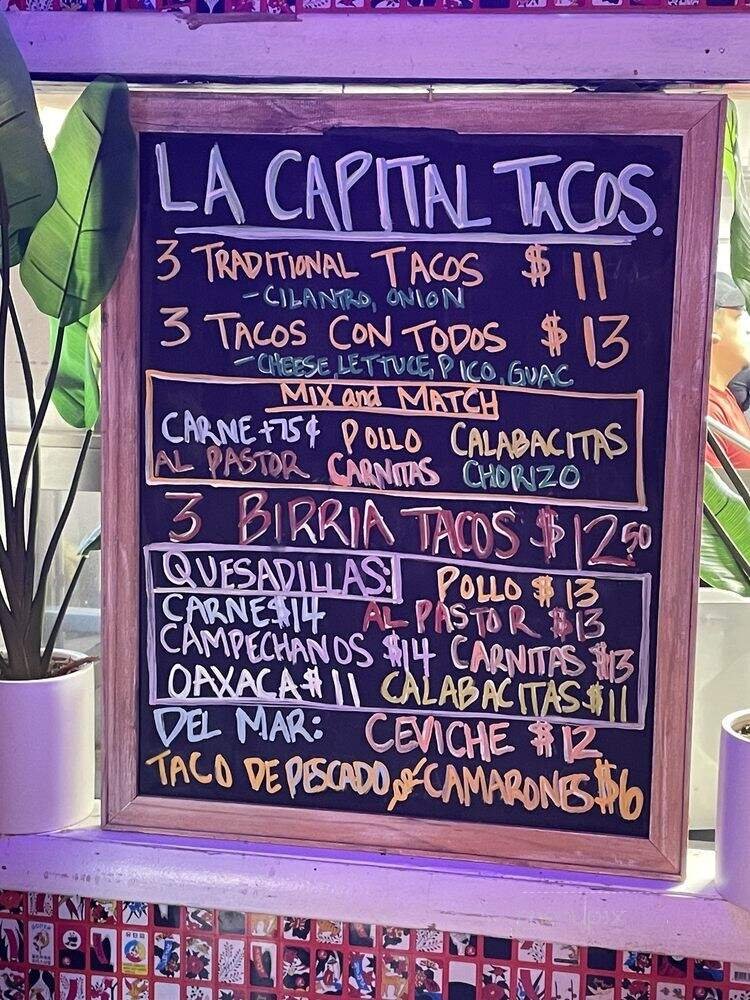 LA CAPITAL TACOS.
3 TRADITIONAL TACOS $11
-CILANTRO, ONION
3 TACOS CON TODOS $13
-CHEESE, LETTUCE, PICO, GUAC
MIX and MATCH
CARNE +75¢ POLLO CALABACITAS
AL PASTOR CARNITAS CHORIZO
3 BIRRIA TACOS $12.50
QUESADILLAS: POLLO $13
CARNE $14 AL PASTOR $13
CAMPECHANOS $14 CARNITAS $13
OAXACA $11 CALABACITAS $11
DEL MAR: CEVICHE $12
TACO DE PESCADO or CAMARONES $6